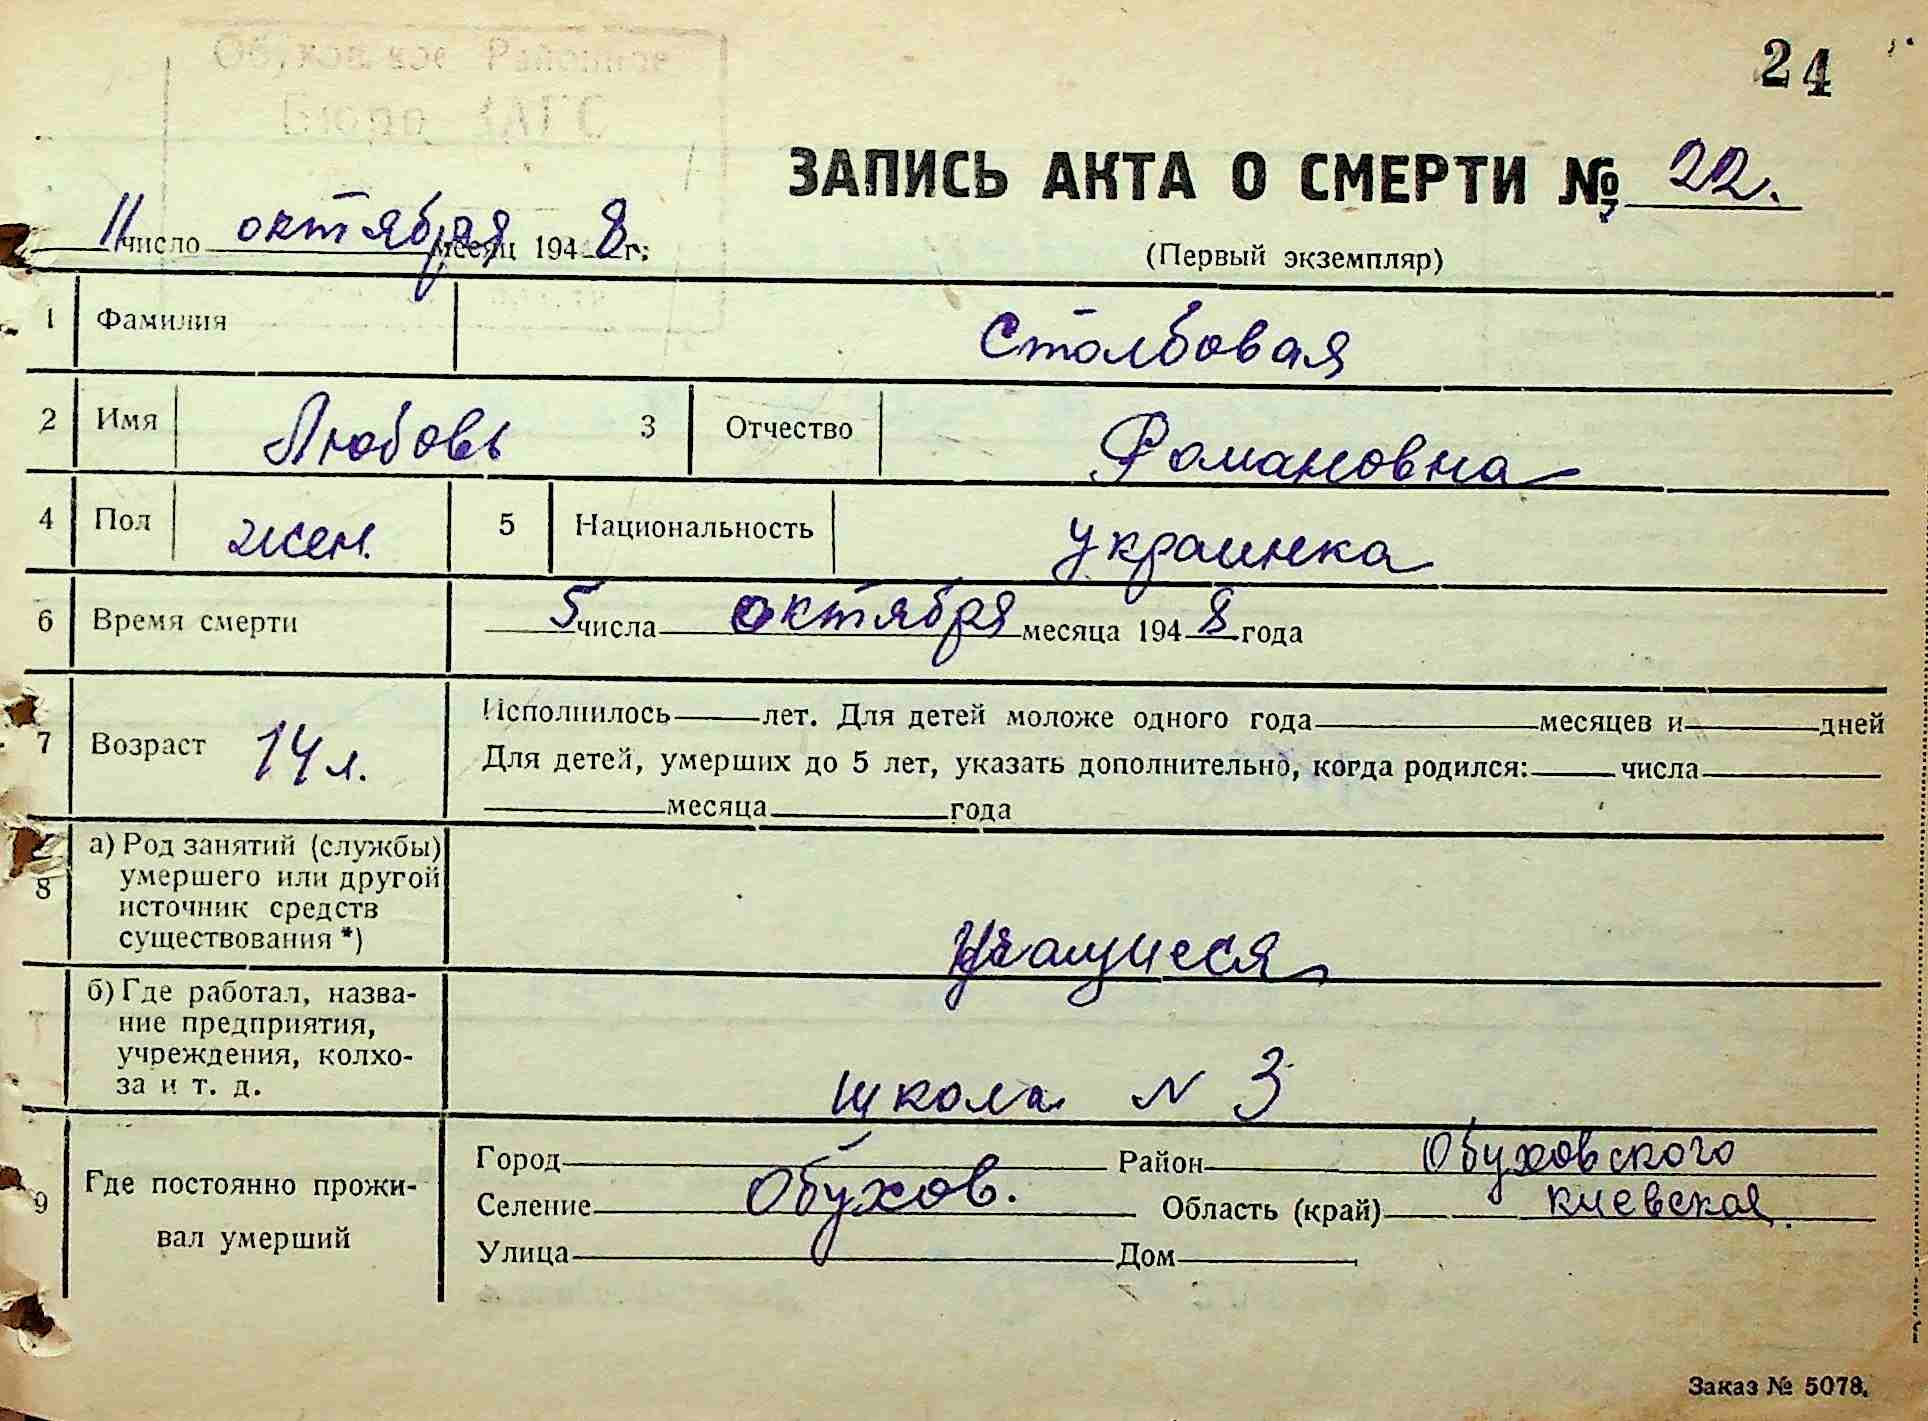 Обуховское Районное
Бюро ЗАГС
24
ЗАПИСЬ АКТА О СМЕРТИ № 22.
11 число октября месяц 1948 г.
(Первый экземпляр)
1 Фамилия Столбовая
2 Имя Любовь 3 Отчество Романовна
4 Пол жен. 5 Национальность украинка
6 Время смерти 5 числа октября месяца 1948 года
7 Возраст 14 л. Исполнилось лет. Для детей моложе одного года месяцев и дней
Для детей, умерших до 5 лет, указать дополнительно, когда родился: числа
месяца года
8 а) Род занятий (службы)
умершего или другой
источник средств
существования *)
Учащиеся
б) Где работал, назва-
ние предприятия,
учреждения, колхо-
за и т. д.
школа N 3
9 Где постоянно прожи-
вал умерший
Город Район Обуховского
Селение Обухов. Область (край) киевская.
Улица Дом
Заказ № 5078.